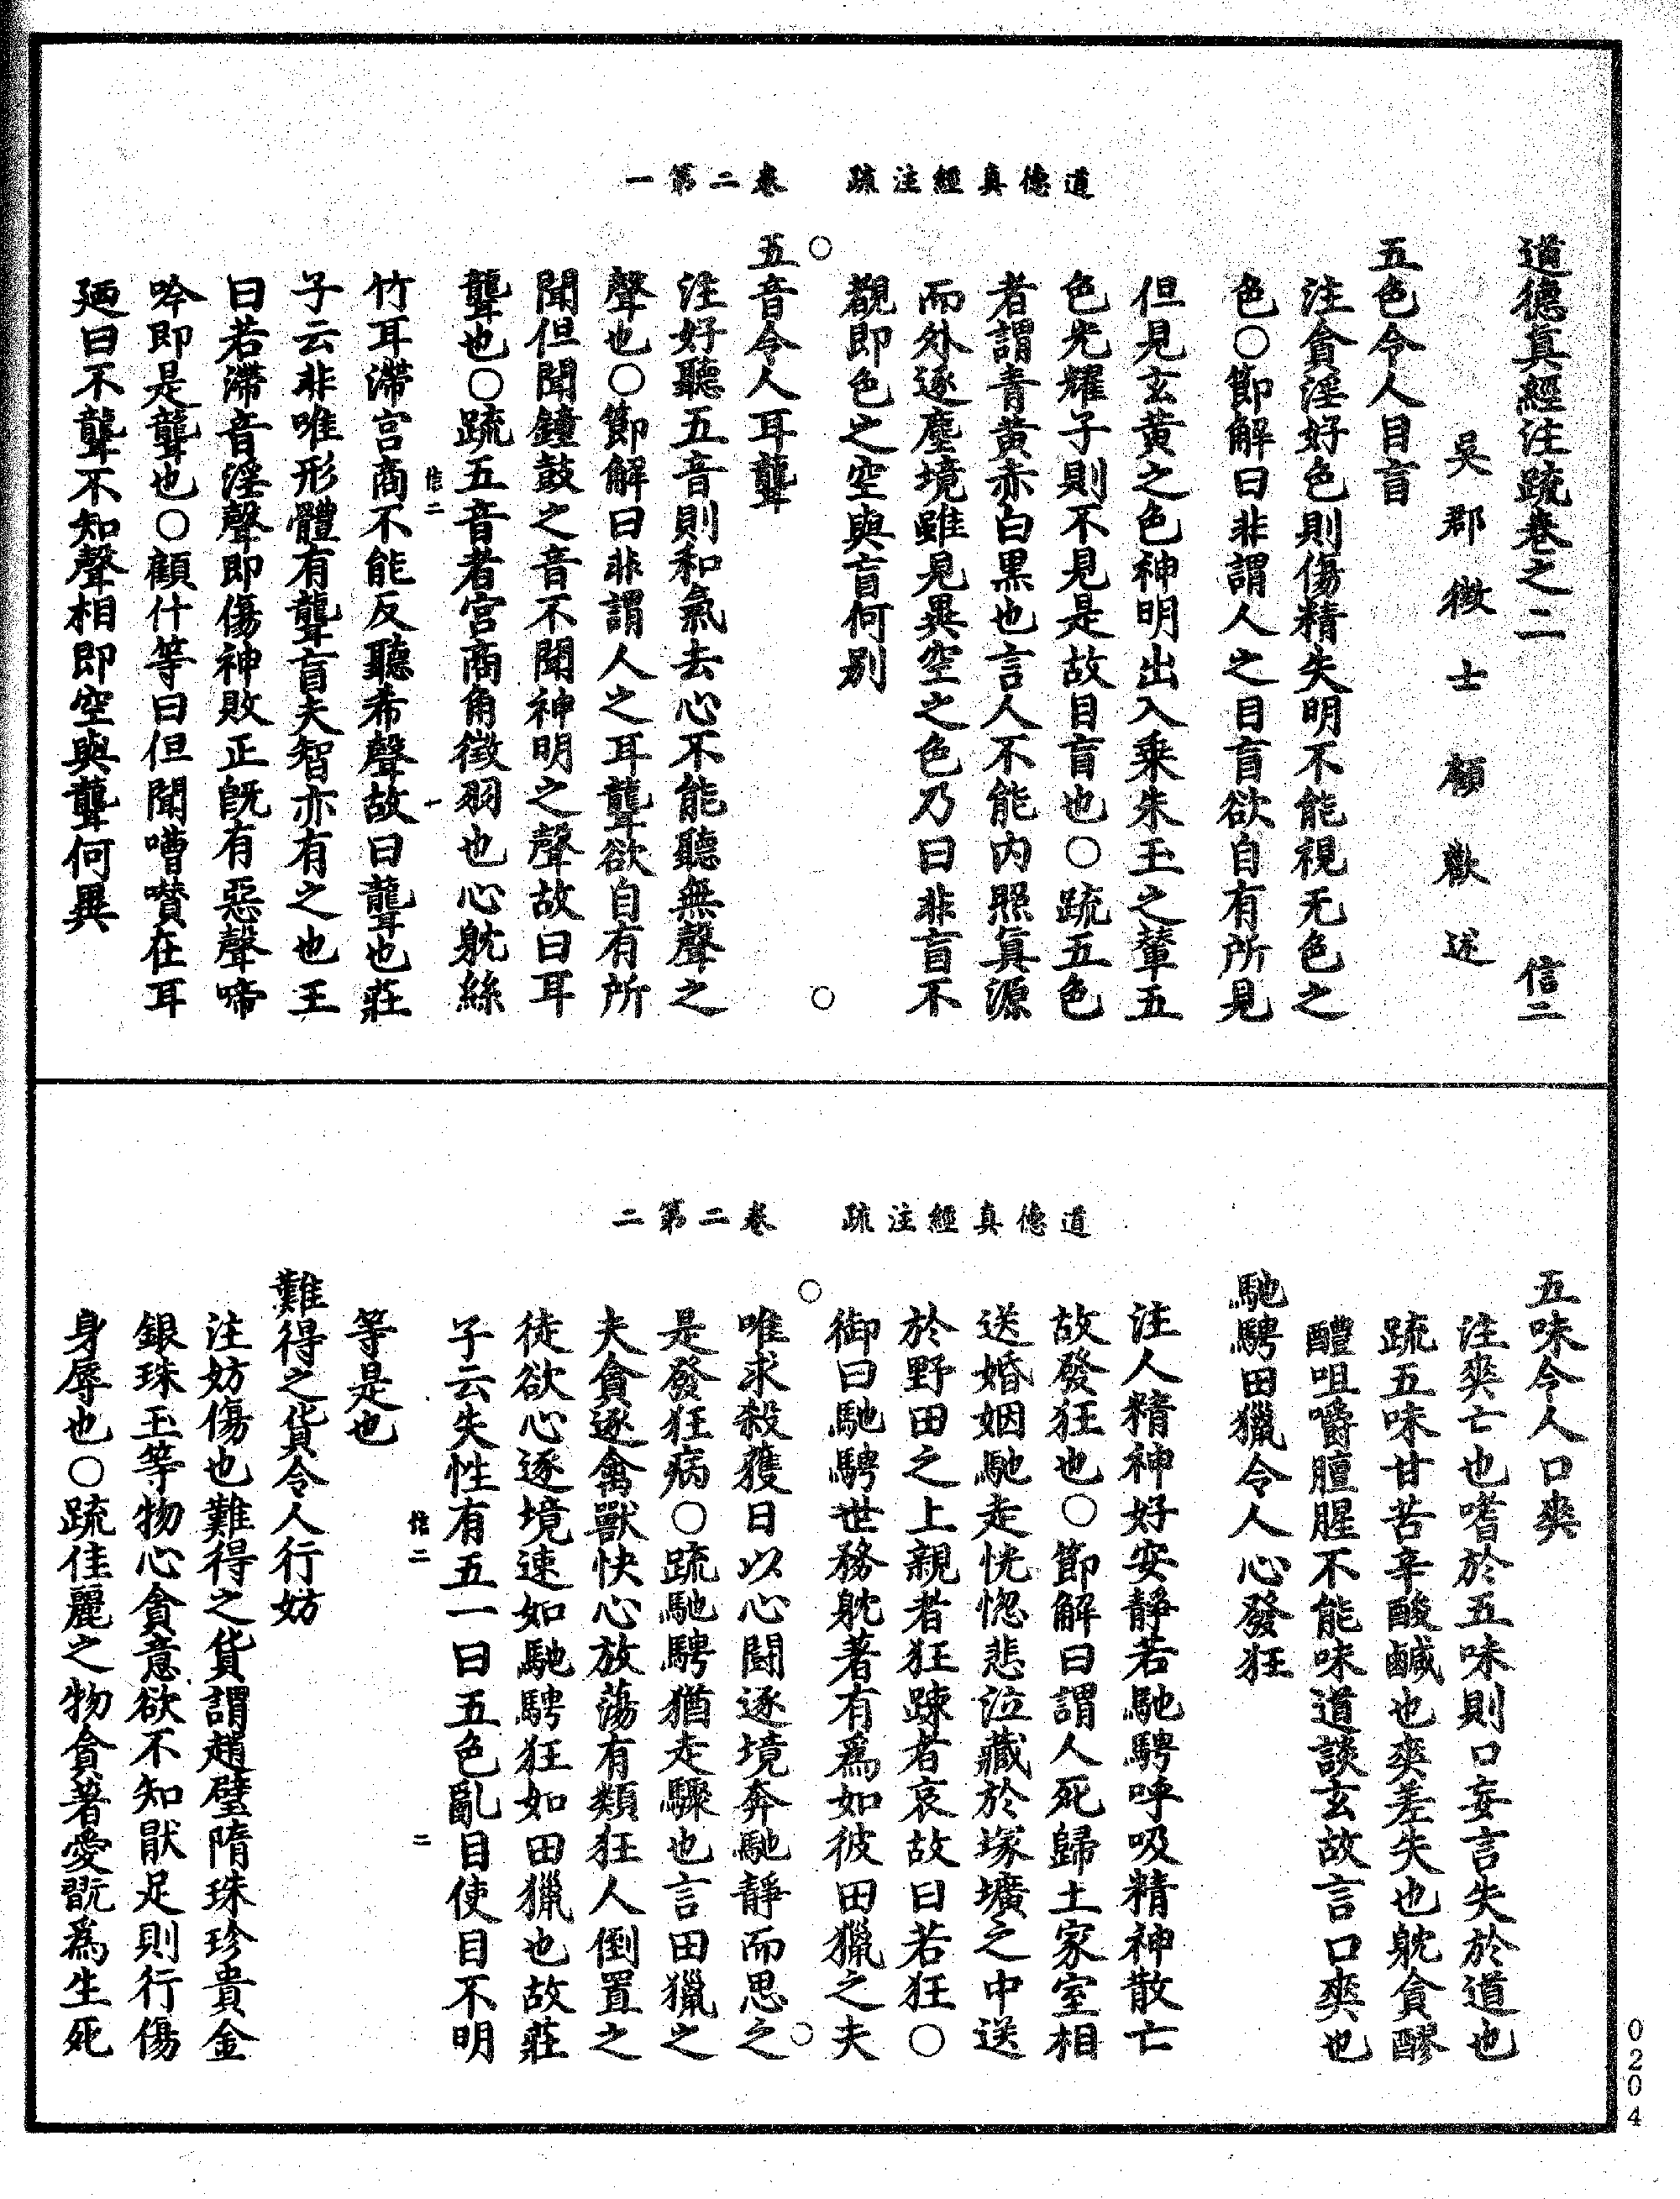 道德真經注疏　卷二第一
道德真經注疏卷之二　信二
吳郡徵士顧歡述
五色令人目盲
注貪淫好色則傷精失明不能視无色之
色○節解曰非謂人之目盲欲自有所見
但見玄黃之色神明出入乘朱玉之輦五
色光耀子則不見是故目盲也○疏五色
者謂青黃赤白黑也言人不能內照真源
而外逐塵境雖見異空之色乃曰非盲不
觀即色之空與盲何別
五音令人耳聾
注好聽五音則和氣去心不能聽無聲之
聲也○節解曰非謂人之耳聾欲自有所
聞但聞鐘鼓之音不聞神明之聲故曰耳
聾也○疏五音者宮商角徵羽也心躭絲
信二　一
竹耳滯宮商不能反聽希聲故曰聾也莊
子云非唯形體有聾盲夫智亦有之也王
曰若滯音淫聲即傷神敗正既有惡聲啼
吟即是聾也○顧什等曰但聞嘈囋在耳
廼曰不聾不知聲相即空與聾何異
道德真經注疏　卷二第二
五味令人口爽
注爽亡也嗜於五味則口妄言失於道也
疏五味甘苦辛酸鹹也爽差失也躭貪醪
醴咀嚼膻腥不能味道談玄故言口爽也
馳騁田獵令人心發狂
注人精神好安靜若馳騁呼吸精神散亡
故發狂也○節解曰謂人死歸土家室相
送婚姻馳走恍惚悲泣藏於塚壙之中送
於野田之上親者狂踈者哀故曰若狂○
御曰馳騁世務躭著有爲如彼田獵之夫
唯求殺獲日以心鬪逐境奔馳靜而思之
是發狂病○疏馳騁猶走驟也言田獵之
夫貪逐禽獸快心放蕩有類狂人倒置之
徒欲心逐境速如馳騁狂如田獵也故莊
子云失性有五一曰五色亂目使目不明
信二　二
等是也
難得之貨令人行妨
注妨傷也難得之貨謂趙璧隋珠珍貴金
銀珠玉等物心貪意欲不知猒足則行傷
身辱也○疏佳麗之物貪著愛翫為生死
0204